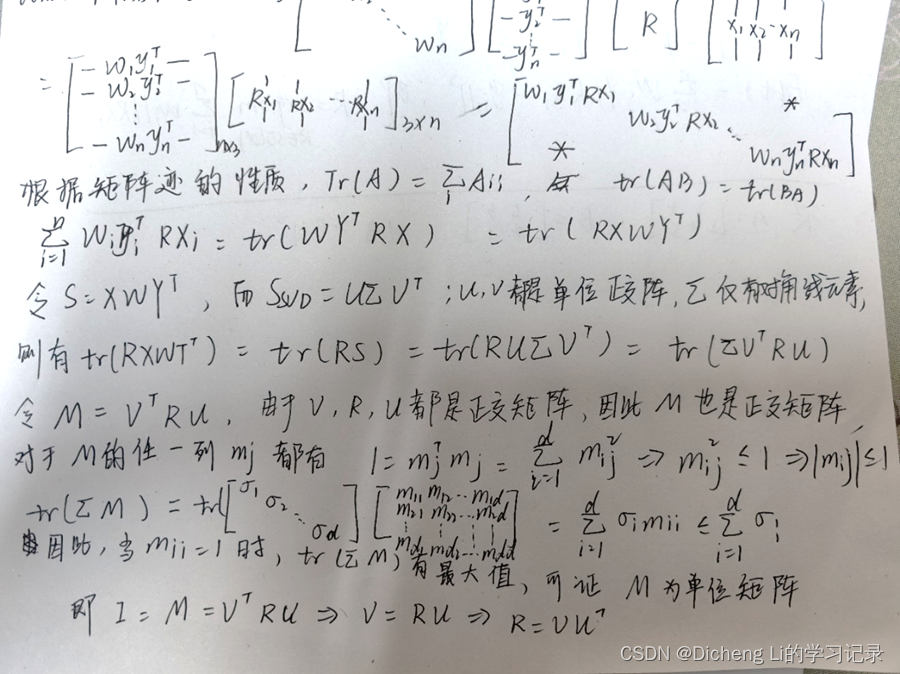 [ ⋱ wn ] [ — y2ᵀ — ⋮ — ynᵀ — ] [ R ] [ x1 x2 ⋯ xn ]
= [ — w1y1ᵀ — — w2y2ᵀ — ⋮ — wnynᵀ — ]n×3 [ Rx1 Rx2 ⋯ Rxn ]3×n = [ w1y1ᵀRx1 w2y2ᵀRx2 ⋱ wnynᵀRxn * * ]
根据矩阵迹的性质, Tr(A) = ∑i Aii , tr(AB) = tr(BA)
∑i=1n wiyiᵀ Rxi = tr(WYᵀRX) = tr(RXWYᵀ)
令 S=XWYᵀ, 而 SSVD = UΣVᵀ ; U,V都是单位正交阵, Σ仅有对角线元素,
则有 tr(RXWTᵀ) = tr(RS) = tr(RUΣVᵀ) = tr(ΣVᵀRU)
令 M = VᵀRU, 由于 V, R, U 都是正交矩阵, 因此 M 也是正交矩阵,
对于 M 的任一列 mj 都有 1 = mjᵀmj = ∑i=1d mij² ⇒ mij² ≤ 1 ⇒ |mij| ≤ 1
tr(ΣM) = tr( [ σ1 σ2 ⋱ σd ] [ m11 m12 ⋯ m1d m21 m22 ⋯ m2d ⋮ ⋮ ⋮ md1 md2 ⋯ mdd ] = ∑i=1d σimii ≤ ∑i=1d σi
因此, 当 mii=1 时, tr(ΣM) 有最大值, 可证 M 为单位矩阵
即 I = M = VᵀRU ⇒ V = RU ⇒ R = VUᵀ
CSDN @Dicheng Li的学习记录